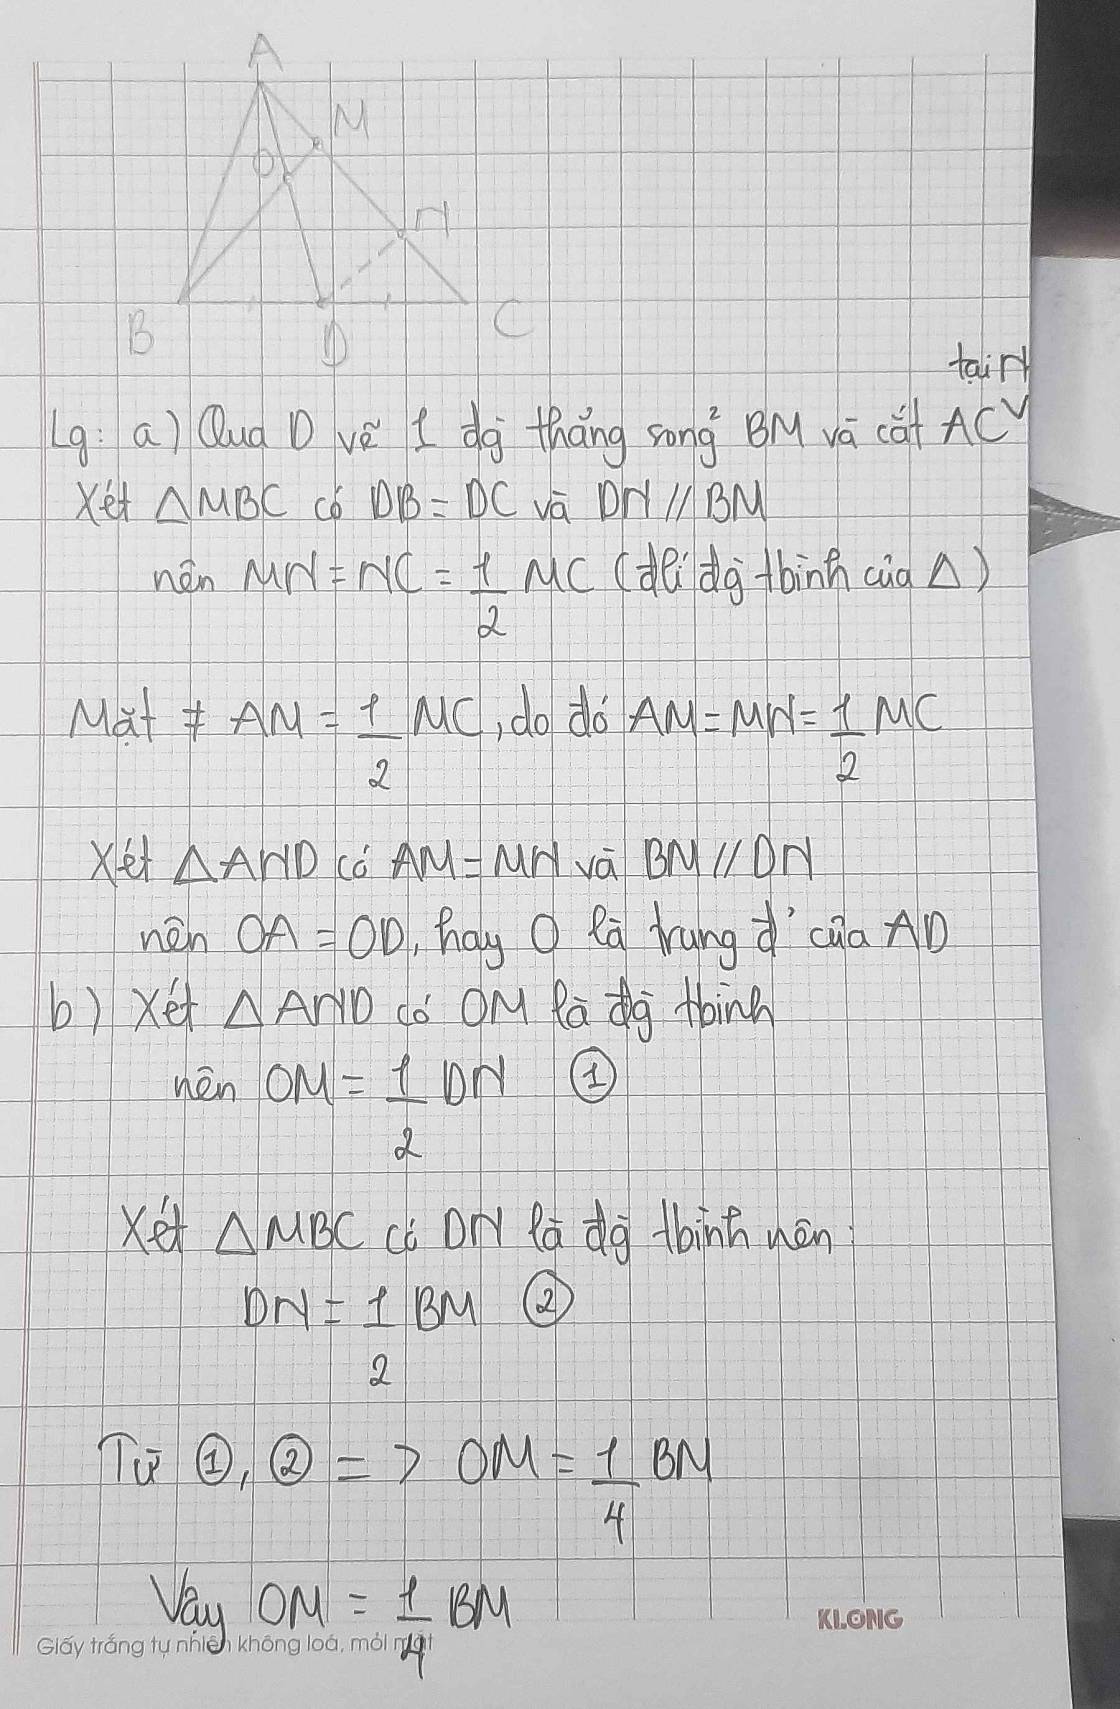 A
M
O
N
B
D
C
tại N
Lg: a) Qua D vẽ 1 đg thẳng song² BM và cắt AC
Xét △MBC có DB = DC và DN // BM
nên MN = NC = 1/2 MC (đlí đg tbình của △)
Mặt ≠ AM = 1/2 MC, do đó AM = MN = 1/2 MC
Xét △AND có AM = MN và BM // DN
nên OA = OD, hay O là trung đ' của AD
b) Xét △AND có OM là đg tbình
nên OM = 1/2 DN ①
Xét △MBC có DN là đg tbình nên:
DN = 1/2 BM ②
Từ ①, ② => OM = 1/4 BM
Vậy OM = 1/4 BM
KLONG
Giấy trắng tự nhiên không loá, mỏi mắt